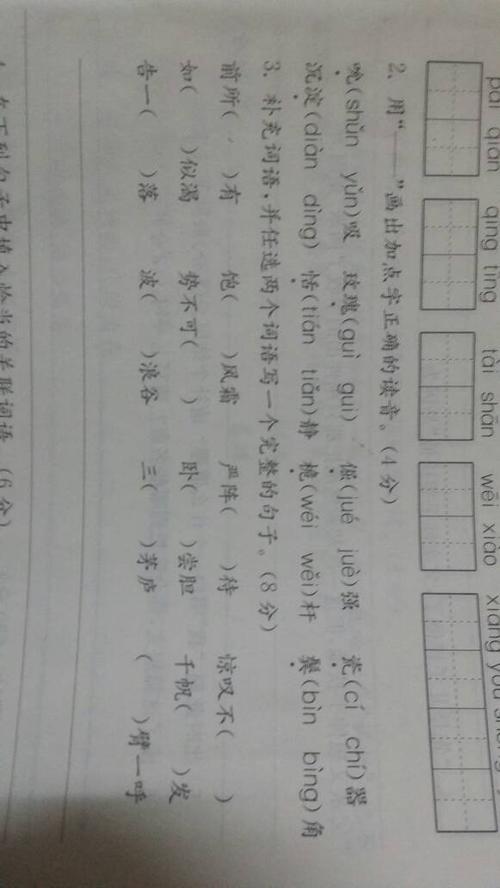 pái qiān qīng tíng tài shān wēi xiào
2. 用“——”画出加点字正确的读音。(4分)
吮(shǔn yǔn)吸 玫瑰(guì gui) 倔(jué juè)强 瓷(cí chí)器
沉淀(diàn dìng) 恬(tián tiǎn)静 桅(wéi wěi)杆 鬓(bìn bìng)角
3. 补充词语,并任选两个词语写一个完整的句子。(8分)
前所( )有 饱( )风霜 严阵( )待 惊叹不( )
如( )似渴 势不可( ) 卧( )尝胆 千帆( )发
告一( )落 波( )浪谷 三( )茅庐 ( )臂一呼
在下列句子中填入恰当的关联词语 (6分)